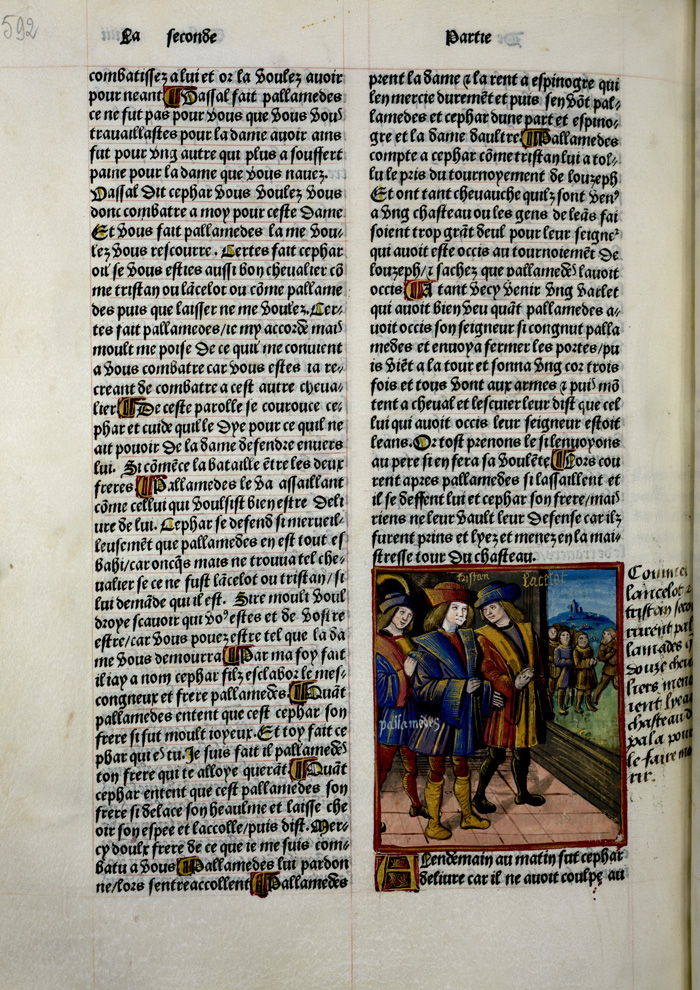 592
La seconde
Partie
combatissez a lui et or la voulez auoir
pour neant Vassal fait pallamedes
ce ne fut pas pour vous que vous vous
trauaillastes pour la dame auoir ains
fut pour vng autre qui plus a souffert
paine pour la dame que vous nauez.
Vassal dit cephar vous voulez vous
donc combatre a moy pour ceste dame
Et vous fait pallamedes la me vou⸗
lez vous rescourre. Certes fait cephar
oui se vous esties aussi bon cheualier cō
me tristan ou lācelot ou cōme pallame
des puis que laisser ne me voulez. Cer⸗
tes fait pallamedes/ie my accorde mais
moult me poise de ce quil me conuient
a vous combatre car vous estes ia re⸗
creant de combatre a cest autre cheua⸗
lier De ceste parolle se courouce ce⸗
phar et cuide quil le dye pour ce quil ne
ait pouoir de la dame defendre enuers
lui. Si cōmēce la bataille ētre les deux
freres Pallamedes le va assaillant
cōme cellui qui voulsist bien estre deli
ure de lui. Cephar se defend si merueil⸗
leusemēt que pallamedes en est tout es
bahi/car oncq̄s mais ne trouua tel che⸗
ualier se ce ne fust lācelot ou tristan/si
lui demāde qui il est. Sire moult voul
droye scauoir qui vo⁹ estes et de vostre
estre/car vous pouez estre tel que la da
me vous demourra Par ma foy fait
il iay a nom cephar filz esclabor le mes⸗
congneux et frere pallamedes Quāt
pallamedes entent que cest cephar son
frere si fut moult ioyeux. Et toy fait ce
phar qui es tu. Je suis fait il pallamedes
ton frere qui te alloye querāt Quāt
cephar entent que cest pallamedes son
frere si delace son heaulme et laisse che
oir son espee et laccolle/puis dist. Mer⸗
cy doulx frere de ce que ie me suis com⸗
batu a vous Pallamedes lui pardon
ne/lors sentreaccollent Pallamedes
prent la dame ⁊ la rent a espinogre qui
len mercie duremēt et puis sen vōt pal⸗
lamedes et cephar dune part et espino⸗
gre et la dame daultre Pallamedes
compte a cephar cōme tristan lui a tol⸗
lu le pris du tournoyement de louzeph
Et ont tant cheuauche quilz sont ven⁹
a vng chasteau ou les gens de leās fai
soient trop grāt deul pour leur seigne²
qui auoit este occis au tournoiemēt de
louzeph/⁊ sachez que pallamedes lauoit
occis A tant vecy venir vng varlet
qui auoit bien veu quāt pallamedes a⸗
uoit occis son seigneur si congnut palla
medes et enuoya fermer les portes/pu
is viēt a la tour et sonna vng cor trois
fois et tous vont aux armes ⁊ puis mō
tent a cheual et lescuier leur dist que cel
lui qui auoit occis leur seigneur estoit
leans. Or tost prenons le si lenuoyons
au pere si en fera sa voulēte Lors cou
rent apres pallamedes si lassaillent et
il se deffent lui et cephar son frere/mais
riens ne leur vault leur defense car ilz
furent prins et lyez et menez en la mai⸗
stresse tour du chasteau.
tristan
lācelot
pallamedes
Comment
lancelot ⁊
tristan
pal
lamedes q
douze cheua
liers
chasteau
pour
le faire mo
rir.
A Lendemain au matin fut cephar
deliure car il ne auoit coulpe au